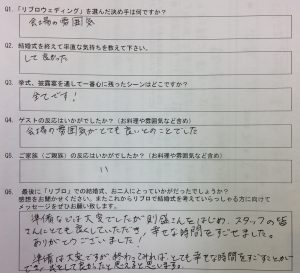 Q1.「リブロウェディング」を選んだ決め手は何ですか?
会場の雰囲気
Q2. 結婚式を終えて率直な気持ちを教えて下さい。
して良かった
Q3. 挙式、披露宴を通して一番心に残ったシーンはどこですか?
全てです!
Q4. ゲストの反応はいかがでしたか?(お料理や雰囲気など含め)
会場の雰囲気がとても良いとのことでした
Q5. ご家族(ご親族)の反応はいかがでしたか?(お料理や雰囲気など含め)
〃
Q6. 最後に「リブロ」での結婚式、お二人にとっていかがだったでしょうか?
感想をお聞かせください。またこれからリブロで結婚式を考えていらっしゃる方に向けて
メッセージをぜひお願い致します。
準備などは大変でしたが をはじめ、スタッフの皆
さんにとても良くしていただき、幸せな時間をすごせました。
ありがとうございました!
準備は大変ですが、終わってみればとても幸せな時間をすごすことが
でき、式をして良かったと思えると思います。